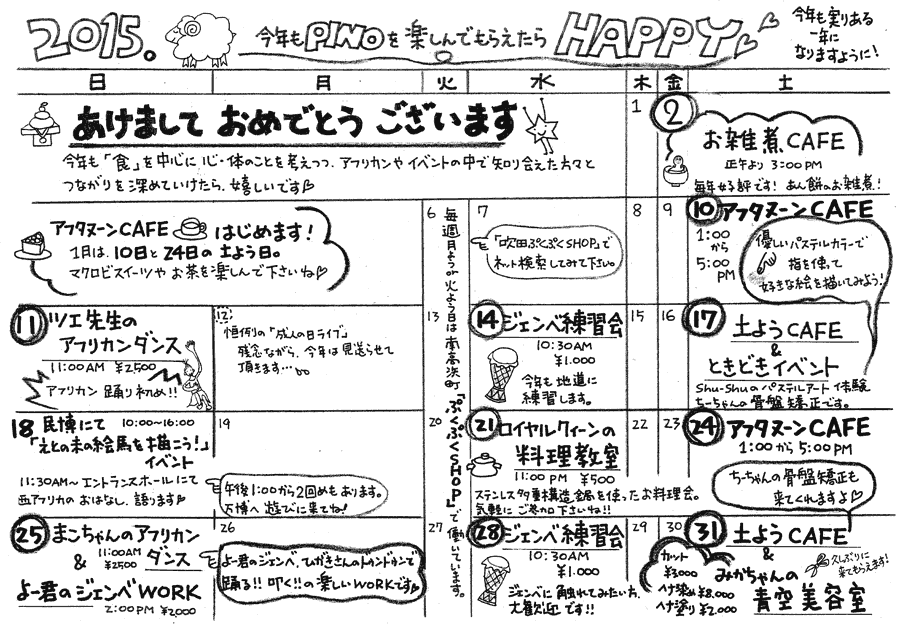 2015。
今年もPINOを楽しんでもらえたら HAPPY
今年も実りある
一年に
なりますように!
日 月 火 水 木 金 土
あけまして おめでとう ございます
今年も「食」を中心に 心・体のことを考えつつ、アフリカンや イベントの中で知り会えた方々と
つながりを深めていけたら、嬉しいです♡
1
2
お雑煮CAFE
正午より 3:00PM
毎年好評です! あん餅のお雑煮!
アフタヌーンCAFE はじめます!
1月は、10日と24日の土よう日。
マクロビスイーツや お茶を楽しんで下さいね♡
6
毎週月よう or 火よう日は 南高浜町『ぷくぷくSHOP』で働いています。
7
「吹田ぷくぷくSHOP」で
ネット検索してみて下さい。
8
9
10 アフタヌーンCAFE
1:00
から
5:00
PM
優しいパステルカラーで
指を使って
好きな絵を描いてみよう!
11 ツエ先生の
アフリカンダンス
11:00AM ¥2500
アフリカン 踊り初め!!
12
恒例の「成人の日ライブ」
残念ながら、今年は見送らせて
頂きます…
13
14 ジェンベ練習会
10:30AM
¥1.000
今年も地道に
練習します。
15
16
17 土ようCAFE
&
ときどきイベント
Shu-Shuのパステルアート体験
ちーちゃんの骨盤矯正です。
18 民博にて 10:00~16:00
「えとの未の絵馬を描こう!」
イベント
11:30AM~ エントランスホールにて
西アフリカの おはなし、語ります♡
19
午後1:00から2回めもあります。
万博へ 遊びに来てね!
20
21 ロイヤルクィーンの
料理教室
11:00PM ¥500
ステンレス多重構造鍋を使ったお料理会。
気軽に ご参加下さいね!!
22
23
24 アフタヌーンCAFE
1:00 から 5:00PM
ちーちゃんの骨盤矯正も
来てくれますよ♡
25 まこちゃんのアフリカン
& 11:00AM ¥2500 ダンス
よー君のジェンベWORK
2:00PM ¥2000
26
よー君のジェンベ、ひがきさんのドゥンドゥンで
踊る!! 叩く!!の 楽しいWORKです♡
27
28 ジェンベ練習会
10:30AM
¥1.000
ジェンベに触れてみたい方、
大歓迎です!!
29
30
31 土ようCAFE
&
みかちゃんの
青空美容室
久しぶりに
来てもらえます!
カット
¥3000
ヘナ染め¥8.000
ヘナ塗り¥2.000